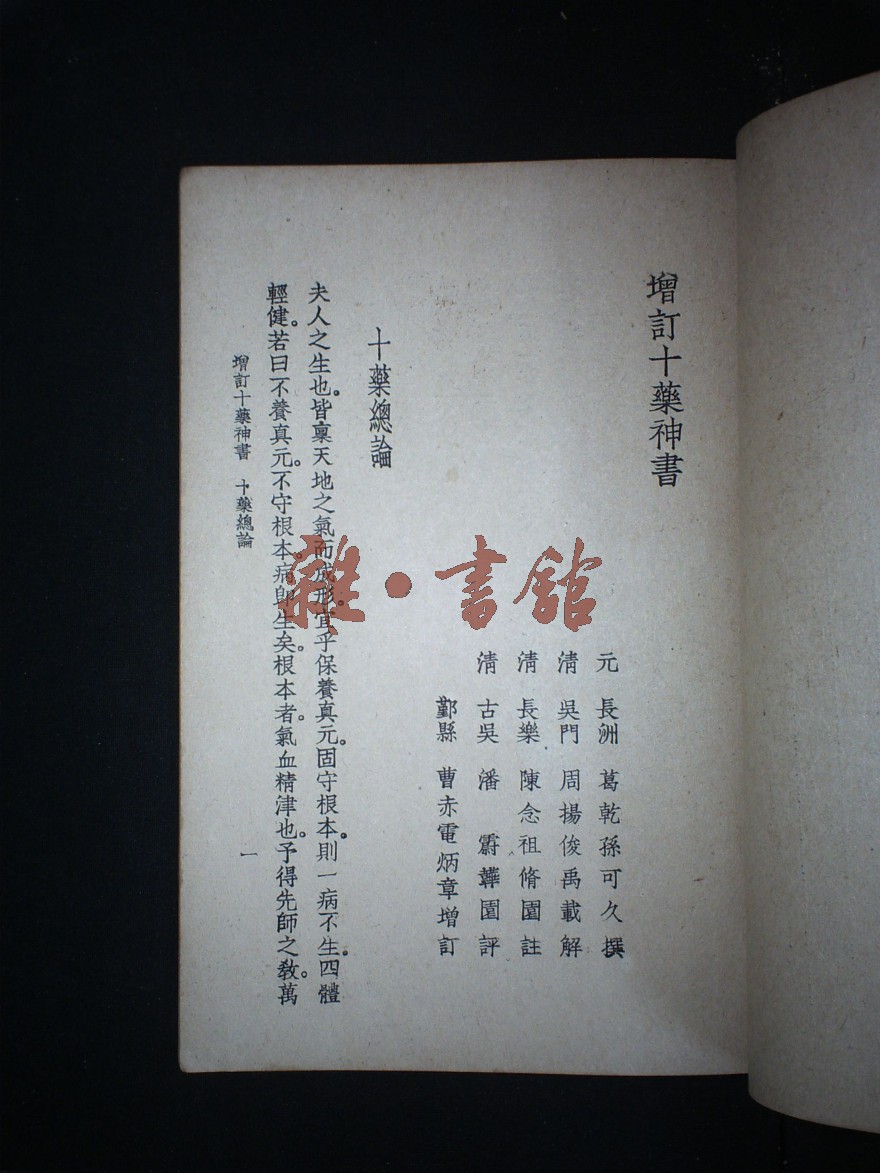 增訂十藥神書
元 長洲 葛乾孫可久撰
清 吳門 周揚俊禹載解
清 長樂 陳念祖脩園註
清 古吳 潘霨韡園評
鄞縣 曹赤電炳章增訂
十藥總論
夫人之生也。皆稟天地之氣而成形。宜乎保養真元。固守根本。則一病不生。四體
輕健。若曰不養真元。不守根本。病卽生矣。根本者。氣血精津也。予得先師之敎。萬
增訂十藥神書 十藥總論
一
雜·書館